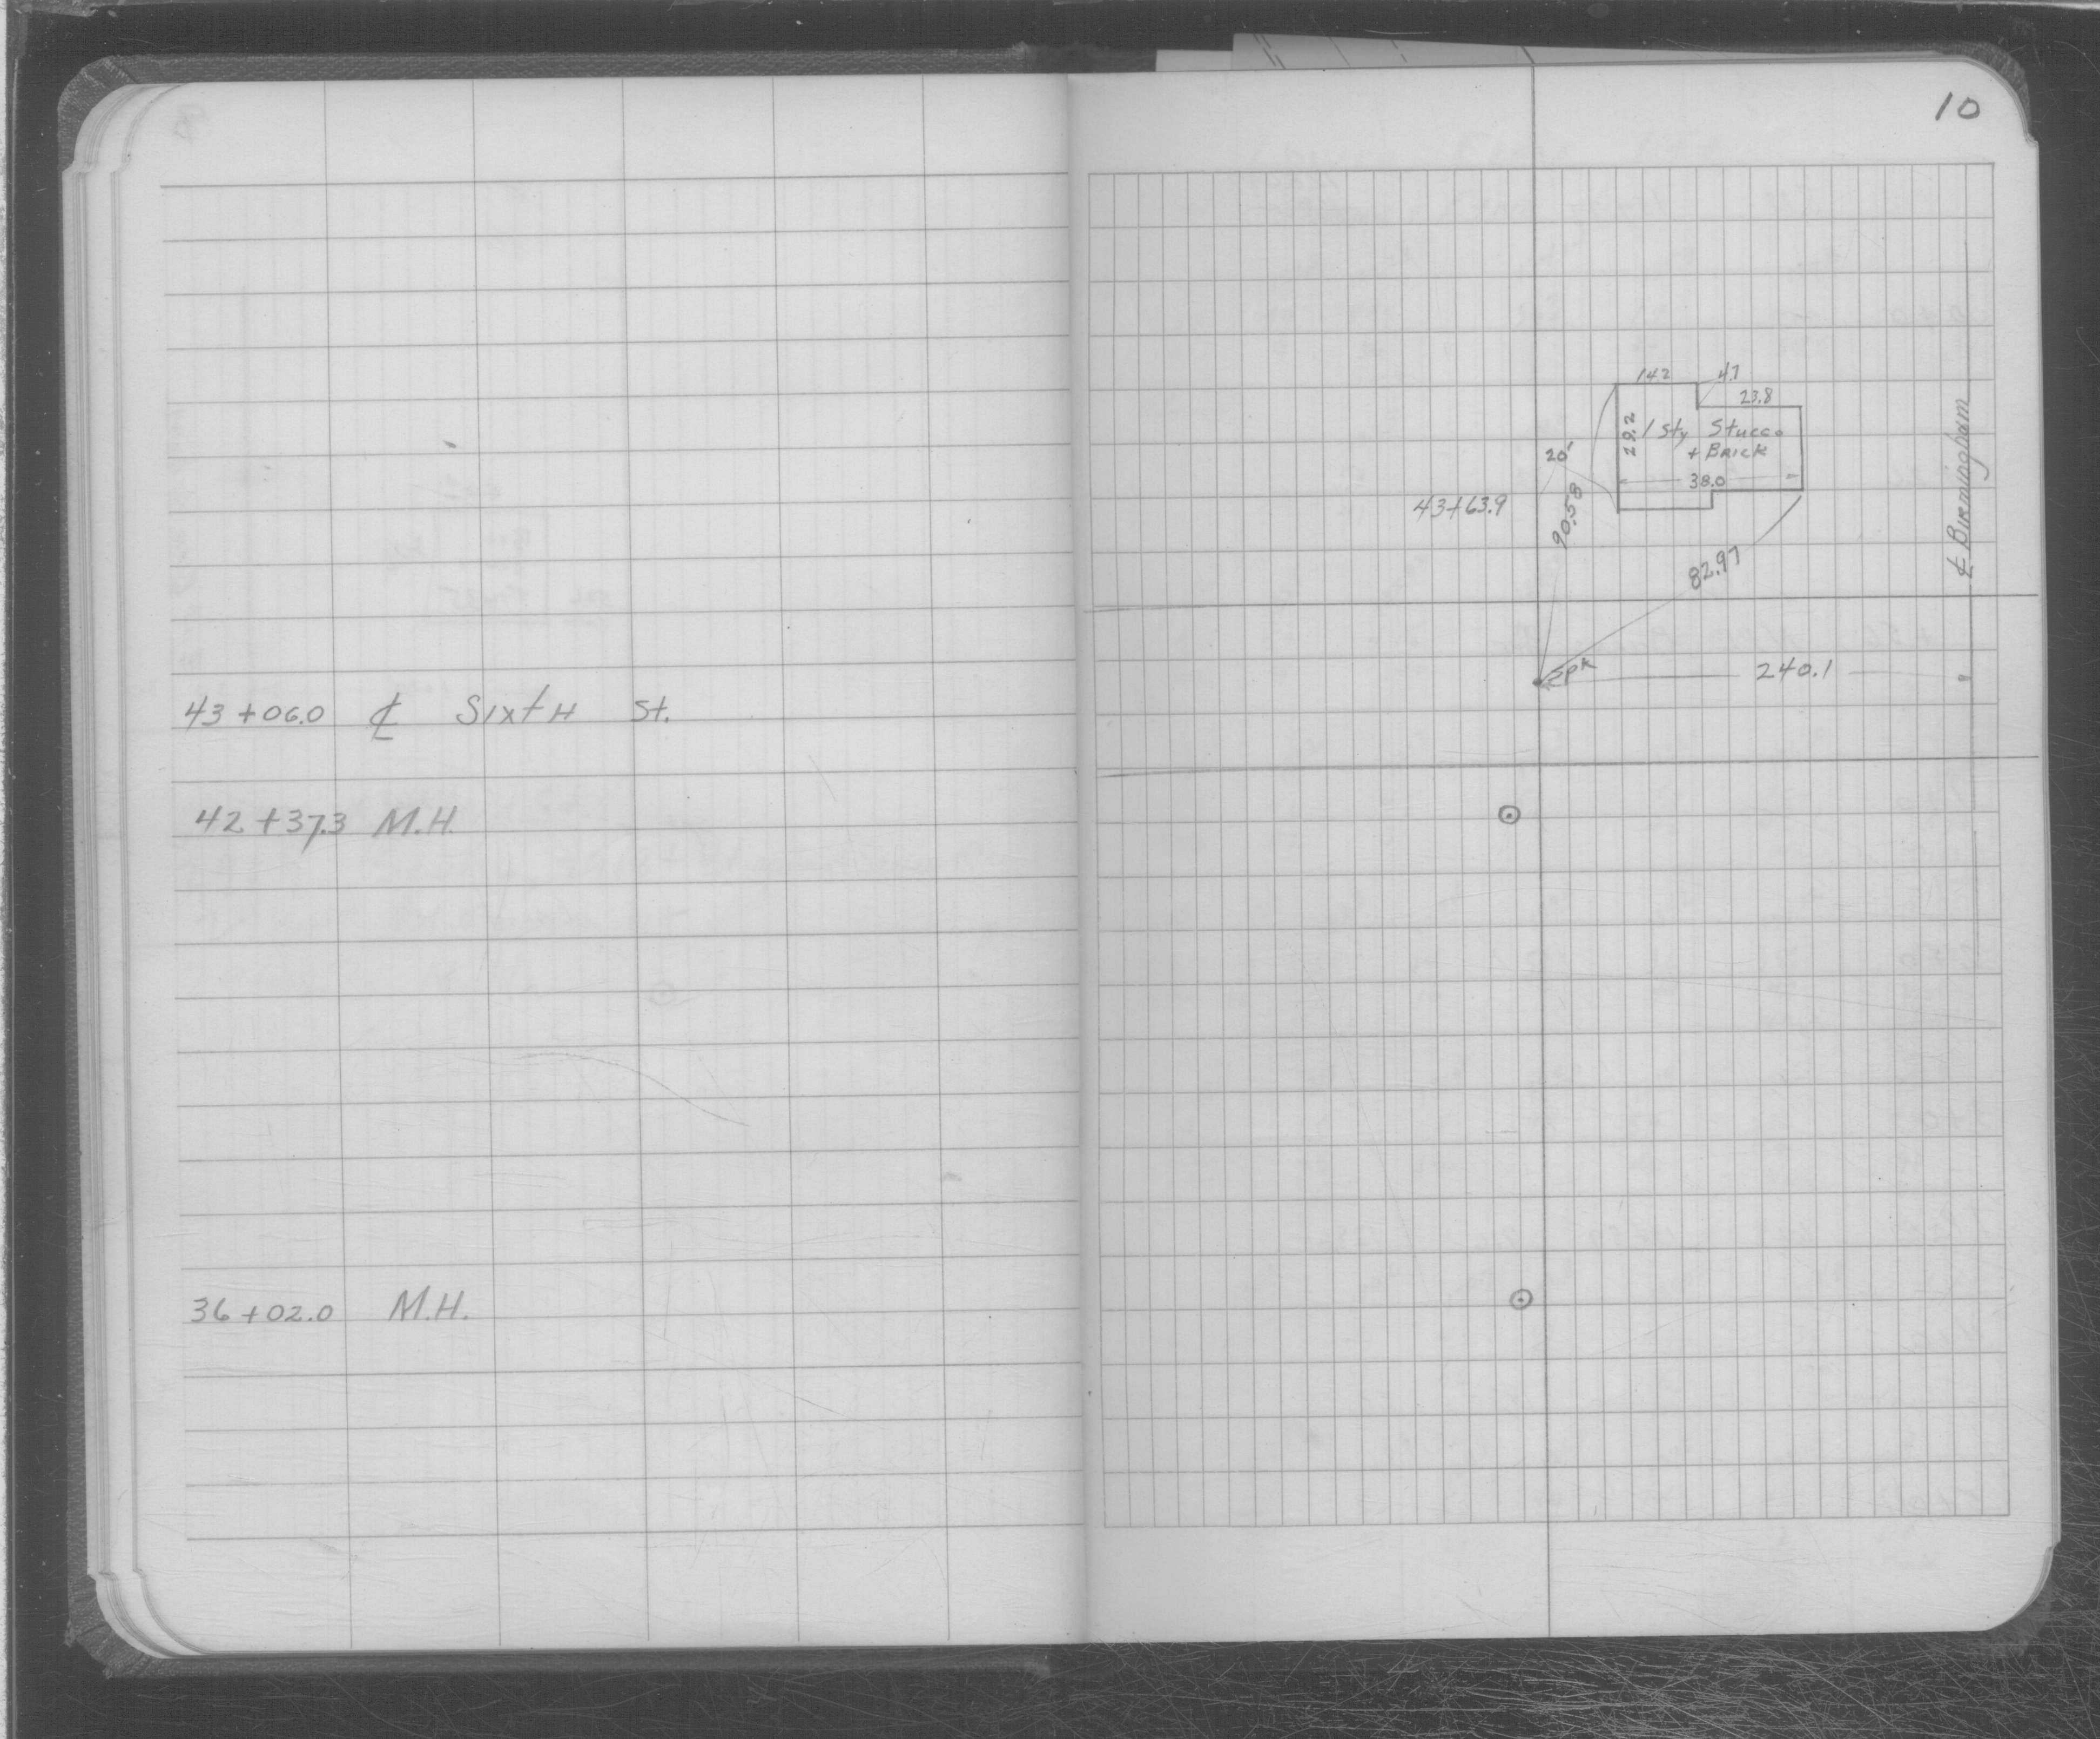 10
14.2 4.7
23.8
29.2
1 Sty Stucco
+ Brick
38.0
20'
43+63.9
90.58
82.97
℄ Birmingham
pk
240.1
43+06.0 ℄ Sixth St.
42+37.3 M.H.
36+02.0 M.H.